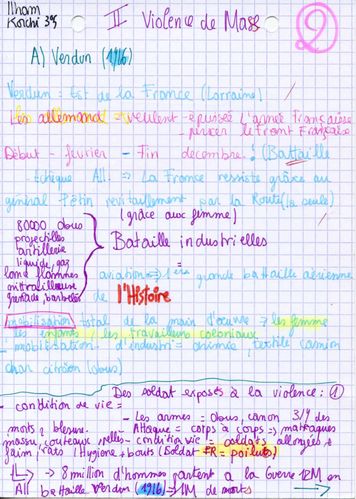 Ilham
Korchi 3°5
II Violence de Mass
2
A) Verdun (1916)
Verdun : Est de la France (Lorraine)
Les allemand = veulent épuisée l'armée française
percer le front Française
Début - fevrier - Fin decembre : (Battaille
échèque All. => La France ressiste grâce au
général Pétin ravitaillement par la Route (la seule)
(grâce aux femme)
80000 obus
projectilles
liquide, gaz
lance flammes
mitrailleuse
grenade barbelés
Bataille industrielles
=
aviation => 1ère grande battaille aérienne
de l'Histoire
mobilisation total de la main d'œuvre => les femme
les enfants / les travailleurs coloniaux
- mobilisation d'industri = chimie, textile camion
char (obus)
Des soldat exposés à la violence : 1
- condition de vie =
- Les armes = obus, canon 3/4 des
morts & blessure. Attaque = corps à corps => matraques
massu, couteaux, pelles - condition vie = soldats allongés &
faim, rats / Hygiene + bouts (Soldat FR = poilus)
=> 8 million d'hommes partent a la Guerre 12M en
All bataille Verdun (1916) => 1M de morts